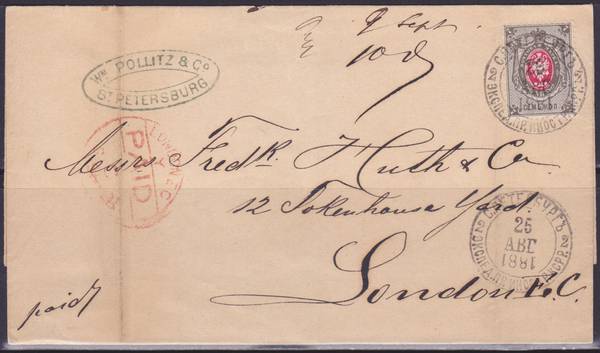 9 Sept
10d/
Wm POLLITZ & Co
ST PETERSBURG
LONDON E.C
PAID
Messrs Fredk. Huth & Co.
12 Tokenhouse Yard.
London E.C.
paid
С.ПЕТЕРБУРГЪ
25
АВГ
1881
2